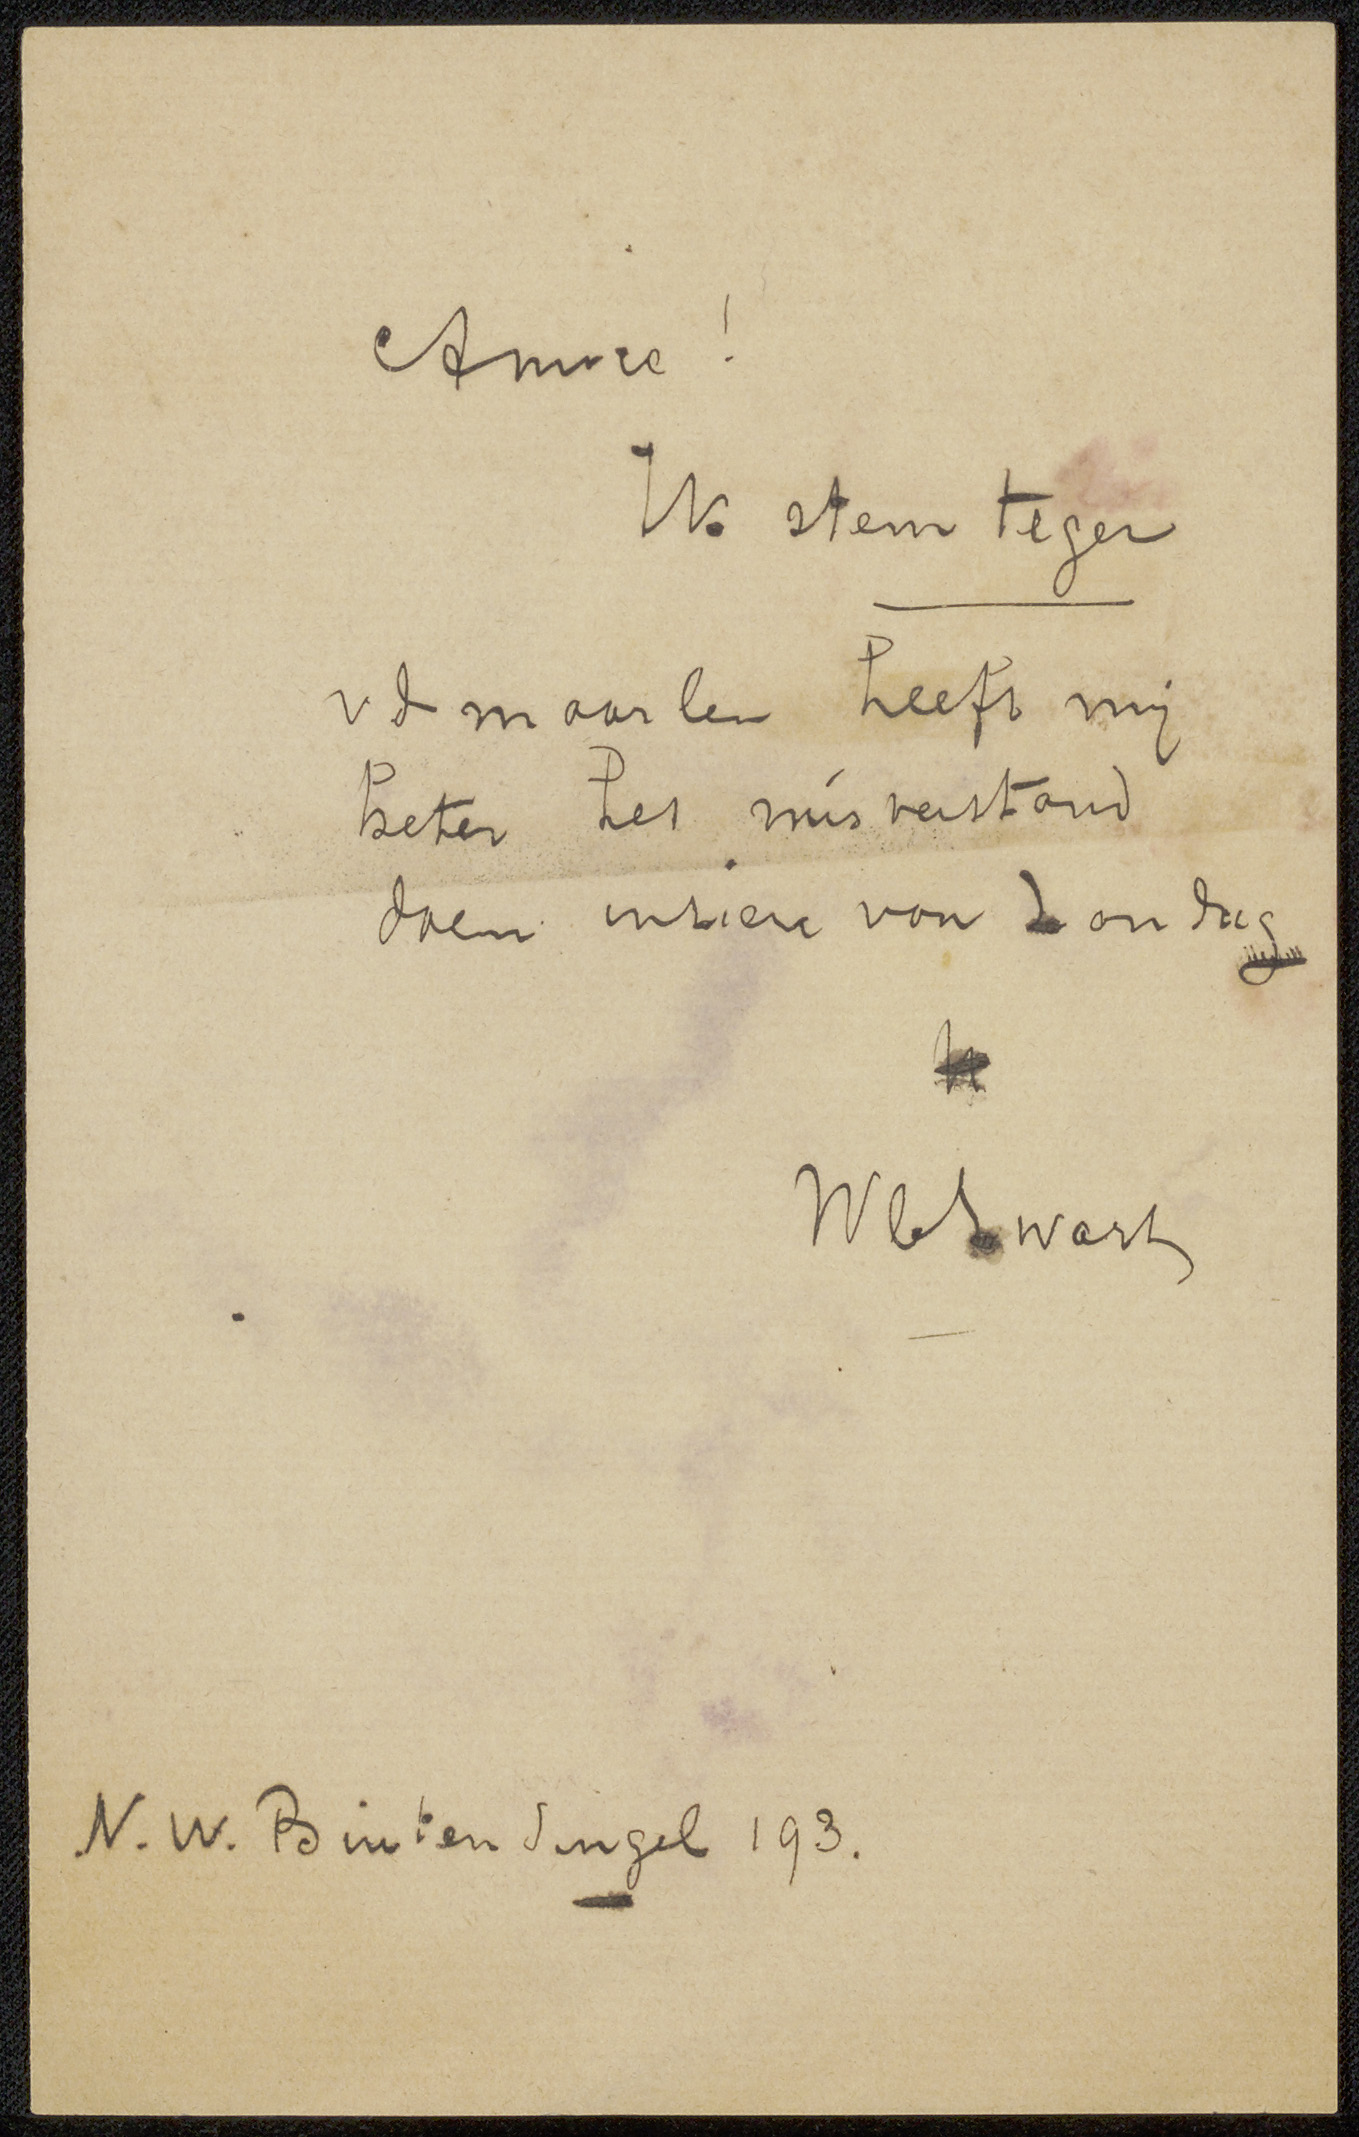 Amice!
Ik stem tegen
vd Maarlen heeft mij
beter het misverstand
doen inzien van Zondag
W d Zwart
N.W. Binnen Singel 193.